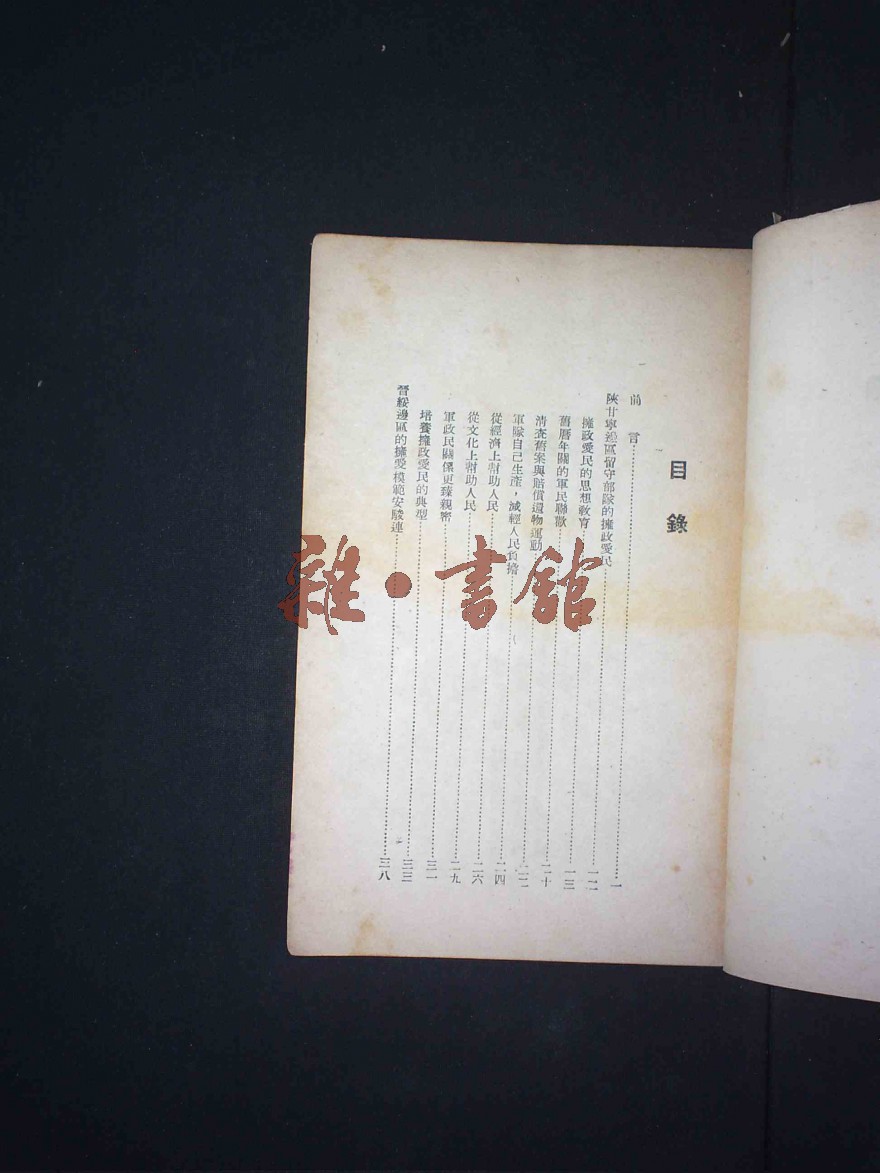 目錄
前言……一
陝甘寧邊區留守部隊的擁政愛民……一二
擁政愛民的思想教育……一三
舊曆年關的軍民聯歡……二十
清查舊案與賠償遺物運動……二二
軍隊自己生產，減輕人民負擔……二四
從經濟上幫助人民……二六
從文化上幫助人民……二九
軍政民關係更臻親密……三一
培養擁政愛民的典型……三三
晉綏邊區的擁愛模範安駿連……三八
雜·書館